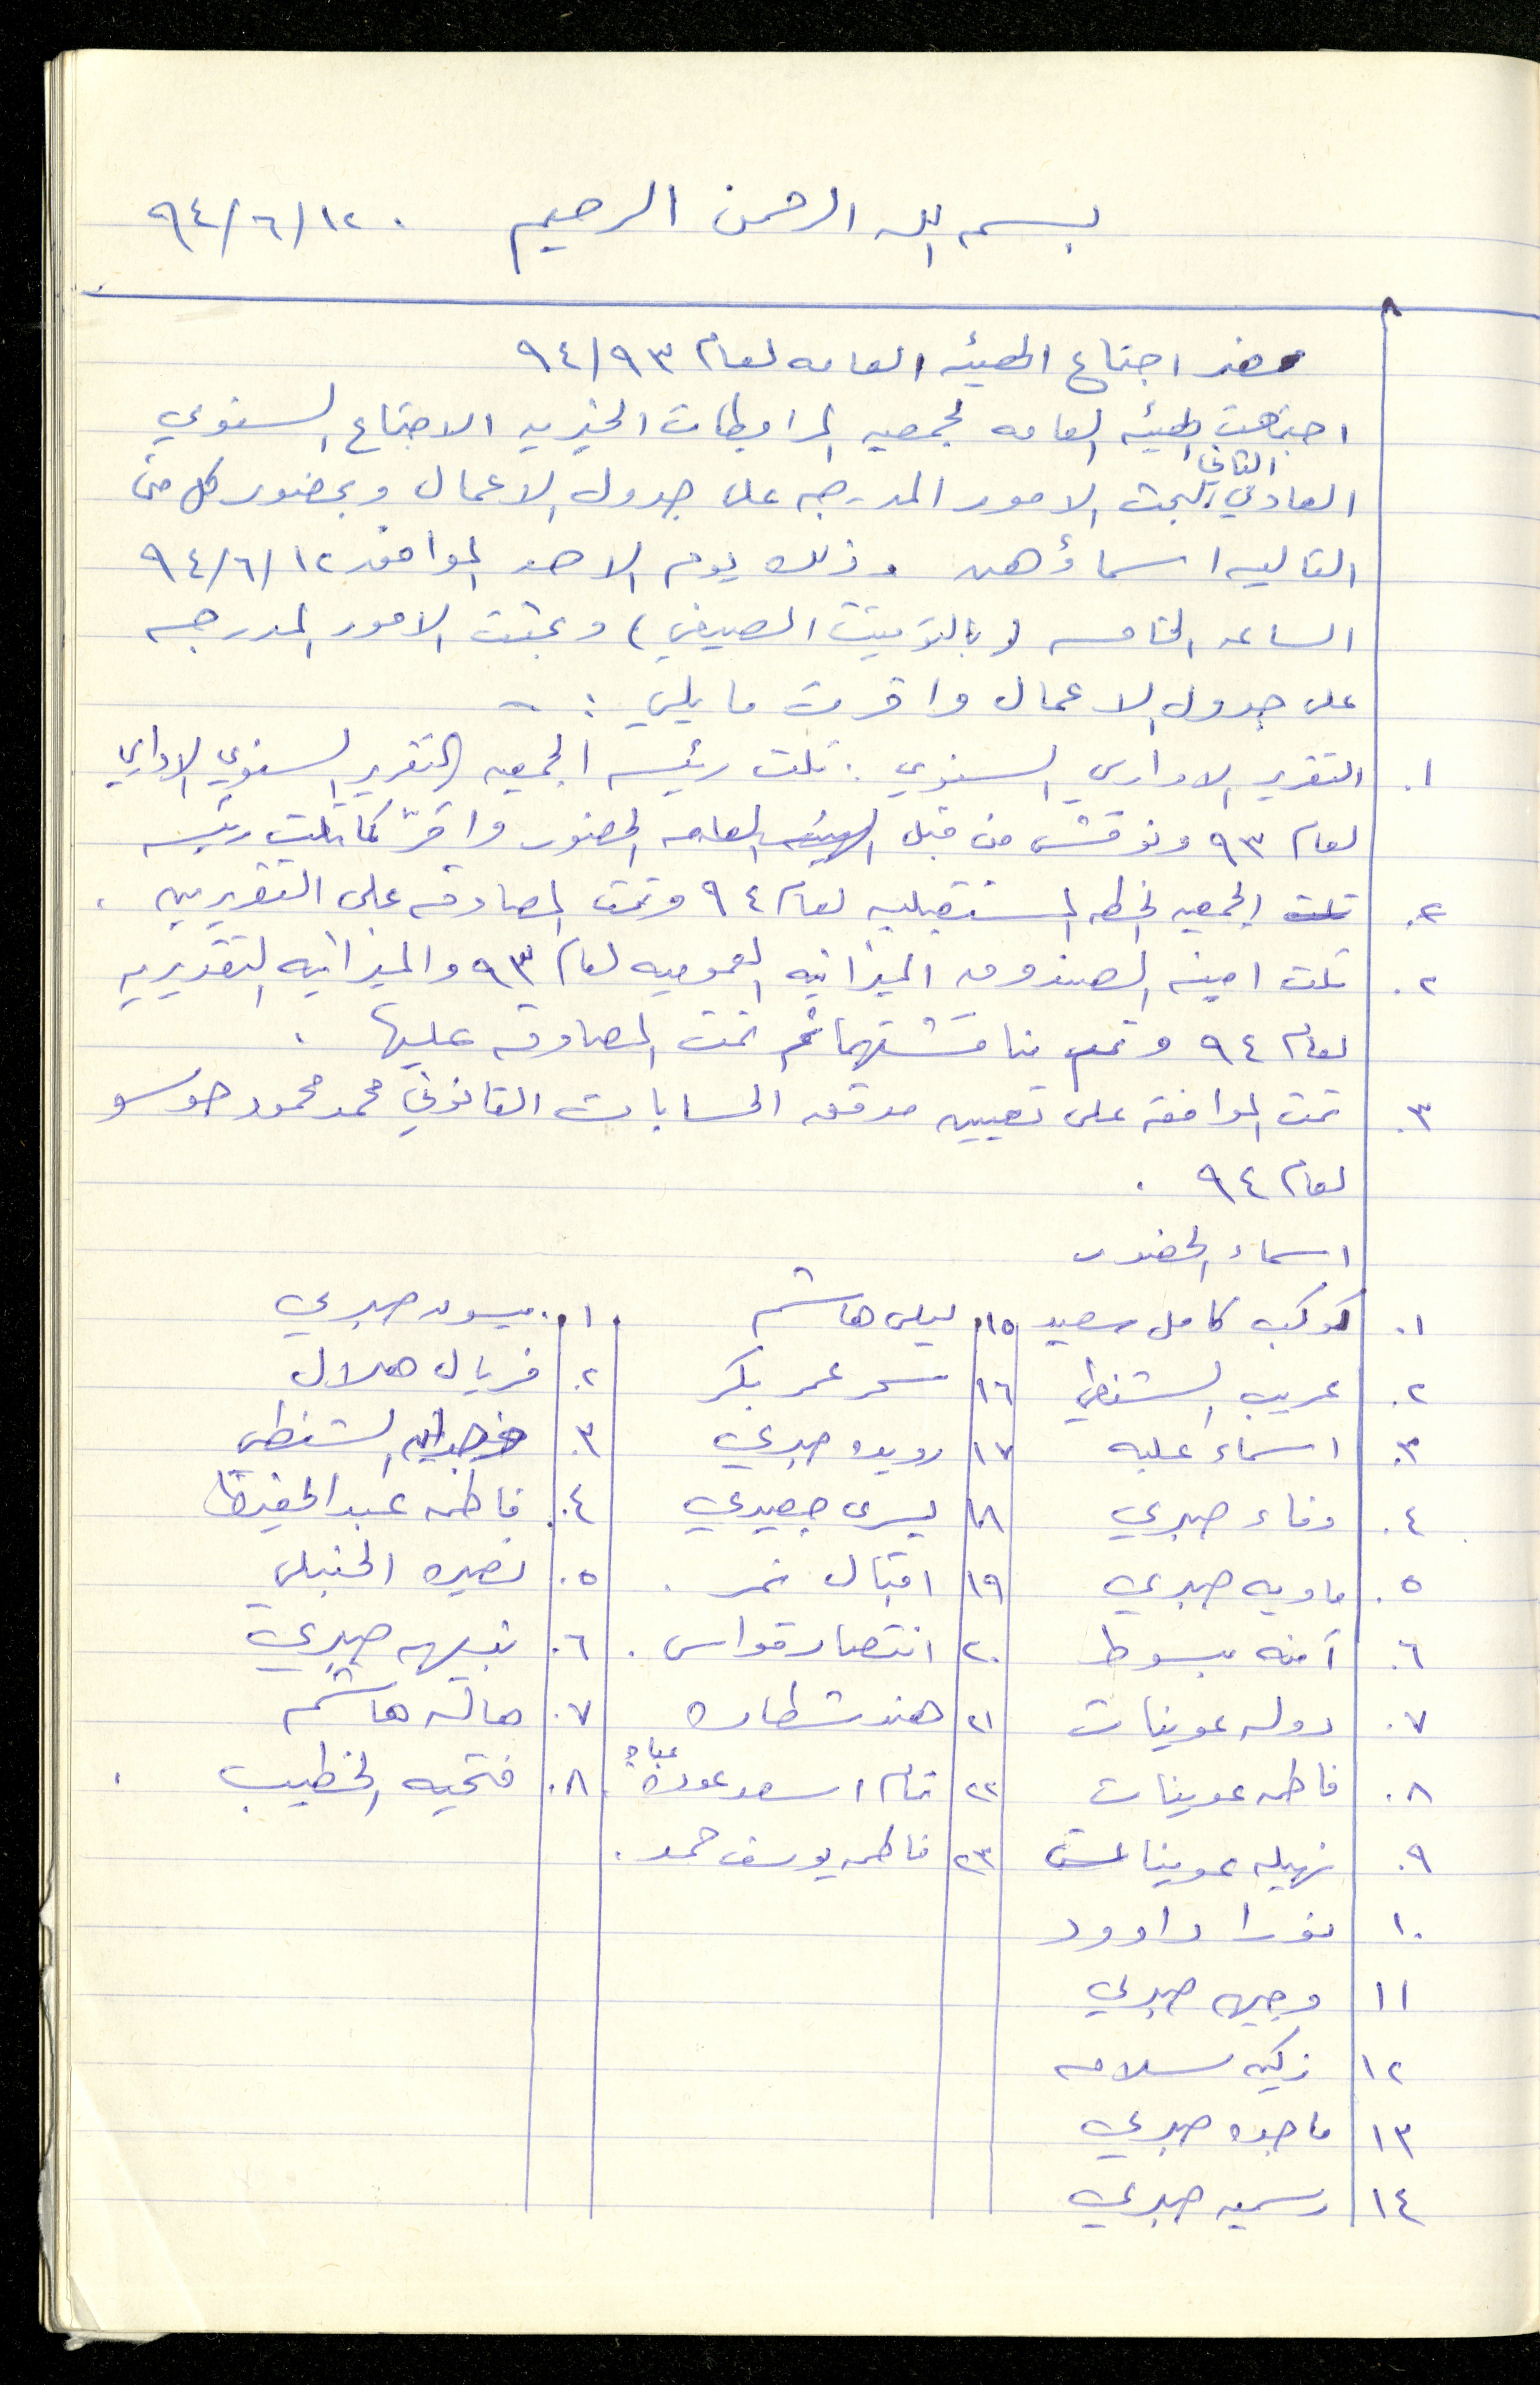 بسم الله الرحمن الرحيم ٩٤/٦/١٢
محضر اجتماع الهيئه العامه لعام ٩٤/٩٣
اجتمعت الهيئه العامه لجمعيه المرابطات الخيريه الاجتماع السنوي
العادي الثاني لبحث الامور المدرجه على جدول الاعمال وبحضور كل من
التاليه اسماؤهن وذلك يوم الاحد الموافق ٩٤/٦/١٢
الساعه الخامسه (بالتوقيت الصيفي) وبحثت الامور المدرجه
على جدول الاعمال واقرت ما يلي :-
١. التقرير الاداري السنوي : تلت رئيسه الجمعيه التقرير السنوي الاداري
لعام ٩٣ ونوقش من قبل الهيئه العامه الحضور واقرّ كما تلت رئيسه
٢. تلت الجمعيه الخطه المستقبليه لعام ٩٤ وتمت المصادقه على التقريرين .
٢. تلت امينه الصندوق الميزانيه العموميه لعام ٩٣ والميزانيه التقديريه
لعام ٩٤ وتم مناقشتهما ثم تمت المصادقه عليها .
٣. تمت الموافقه على تعيين مدقق الحسابات القانوني محمد محمود حوسو
لعام ٩٤ .
اسماء الحضور
١. كوكب كامل سعيد
٢. عريب الشنطي
٣. اسماء علبه
٤. وفاء صبري
٥. ماويه صبري
٦. آمنه بسوط
٧. دوله عوينات
٨. فاطمه عوينات
٩. نهيله عوينات
١٠. نورا داوود
١١ وجيهه صبري
١٢ زكيه سلامه
١٣ ماجده صبري
١٤ رسميه صبري
١٥ ليلى هاشم
١٦ سحر عمر بكر
١٧ رويده صبري
١٨ يسرى جعيدي
١٩ اقبال نمر .
٢٠ انتصار قواس .
٢١ هند شطاره
٢٢ تمام اسعد عوده .
٢٣ فاطمه يوسف حمد .
١. ميسون صبري
٢. فريال هلال
٣. الشنطي
٤. فاطمه عبد الحفيظ
٥. نصيره الحنبلي
٦. نبيهه صبري
٧. هاله هاشم
٨. فتحيه الخطيب .